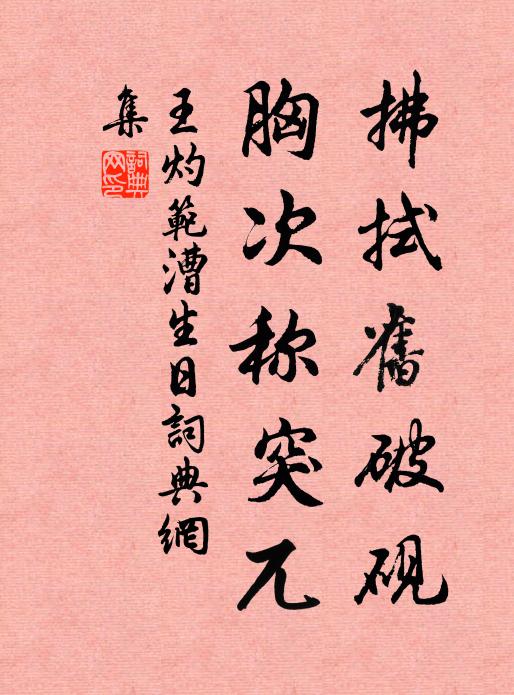 拂拭舊破硯
胸次称突兀
王灼範漕生日詞典網
集
詞典
网印